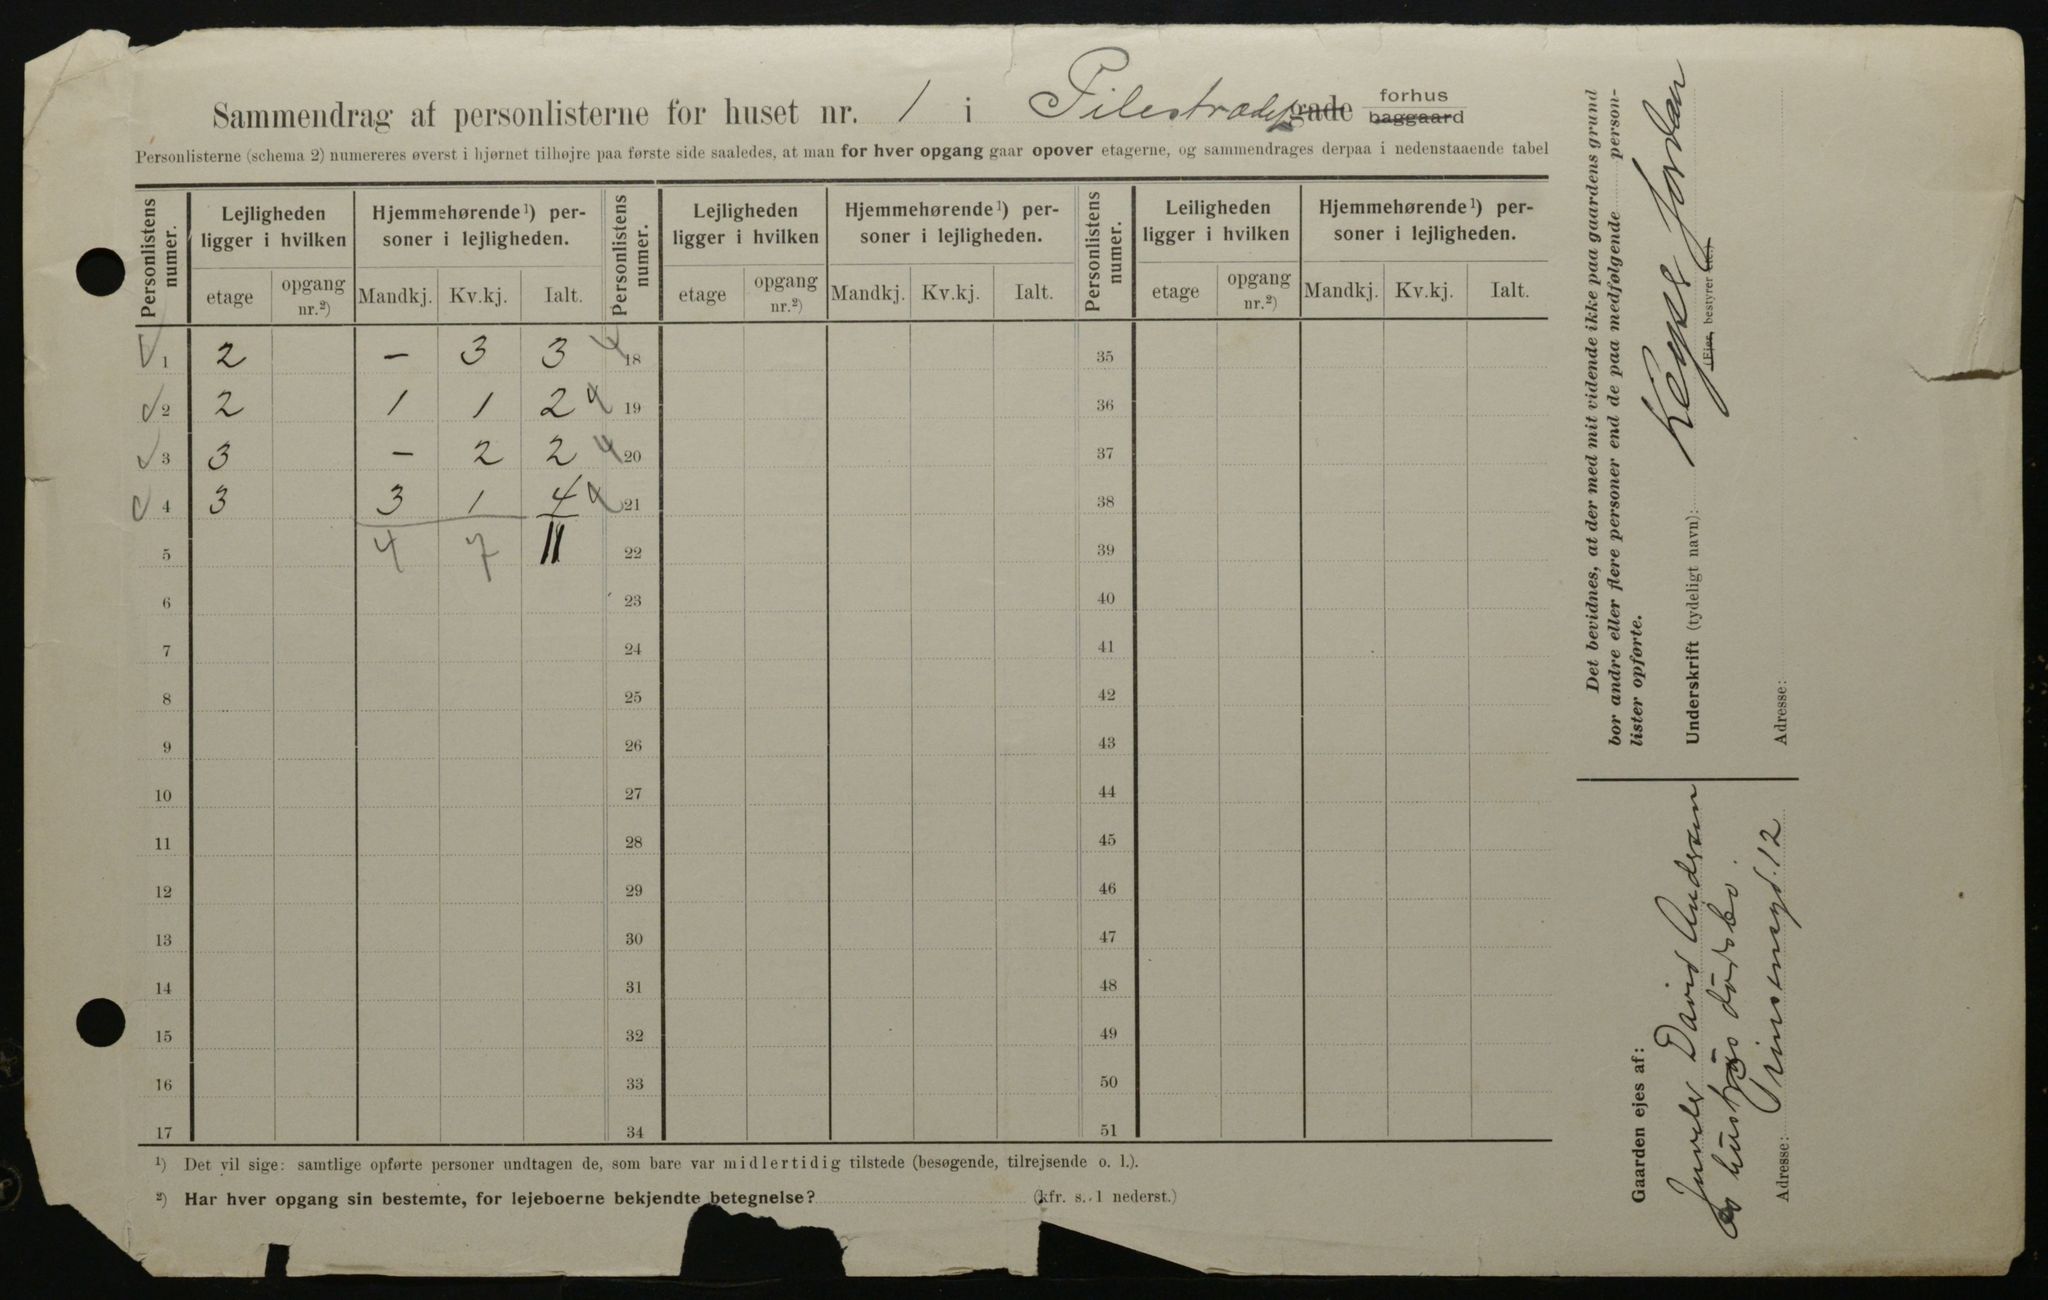 Sammendrag af personlisterne for huset nr. 1 i Pilestrædet gade forhus baggaard
Personlisterne (schema 2) numereres øverst i hjørnet tilhøjre paa første side saaledes, at man for hver opgang gaar opover etagerne, og sammendrages derpaa i nedenstaaende tabel
Personlistens numer. Lejligheden ligger i hvilken Hjemmehørende¹) personer i lejligheden. Personlistens numer. Lejligheden ligger i hvilken Hjemmehørende¹) personer i lejligheden. Personlistens numer. Leiligheden ligger i hvilken Hjemmehørende¹) personer i lejligheden.
etage opgang nr.²) Mandkj. Kv.kj. Ialt. etage opgang nr.²) Mandkj. Kv.kj. Ialt. etage opgang nr.²) Mandkj. Kv.kj. Ialt.
1 2 – 3 3 18 35
2 2 1 1 2 19 36
3 3 – 2 2 20 37
4 3 3 1 4 21 38
5 4 7 11 22 39
6 23 40
7 24 41
8 25 42
9 26 43
10 27 44
11 28 45
12 29 46
13 30 47
14 31 48
15 32 49
16 33 50
17 34 51
¹) Det vil sige: samtlige opførte personer undtagen de, som bare var midlertidig tilstede (besøgende, tilrejsende o. l.).
²) Har hver opgang sin bestemte, for lejeboerne bekjendte betegnelse? (kfr. s. 1 nederst.)
Det bevidnes, at der med mit vidende ikke paa gaardens grund
bor andre eller flere personer end de paa medfølgende personlister opførte.
Underskrift (tydeligt navn): Jordan
(Ejer, bestyrer etc.)
Adresse:
Gaarden ejes af:
Juveler David Andersen
hustrus dødsbo.
Adresse: Prinsensgd. 12